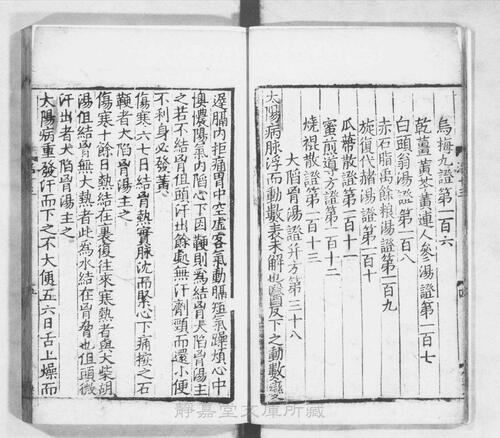 烏梅丸證第一百六
乾薑黃芩黃連人參湯證第一百七
白頭翁湯證第一百八
赤石脂禹餘粮湯證第一百九
旋復代赭湯證第一百十
瓜蒂散證第一百十一
蜜煎導方證第一百十二
燒裩散證第一百十三
大陷胷湯證并方第三十八
太陽病脉浮而動數表未解也醫反下之動數變
遲膈内拒痛胃中空虛客氣動膈短氣躁煩心中
懊憹陽氣内陷心下因鞕則為結胷大陷胷湯主
之若不結胷但頭汗出餘處無汗劑頸而還小便
不利身必發黃
傷寒六七日結胷熱實脉沈而緊心下痛按之石
鞕者大陷胷湯主之
傷寒十餘日熱結在裏復往來寒熱者與大柴胡
湯但結胷無大熱者此為水結在胷脅也但頭微
汗出者大陷胷湯主之
太陽病重發汗而下之不大便五六日舌上燥而
靜嘉堂文庫所藏